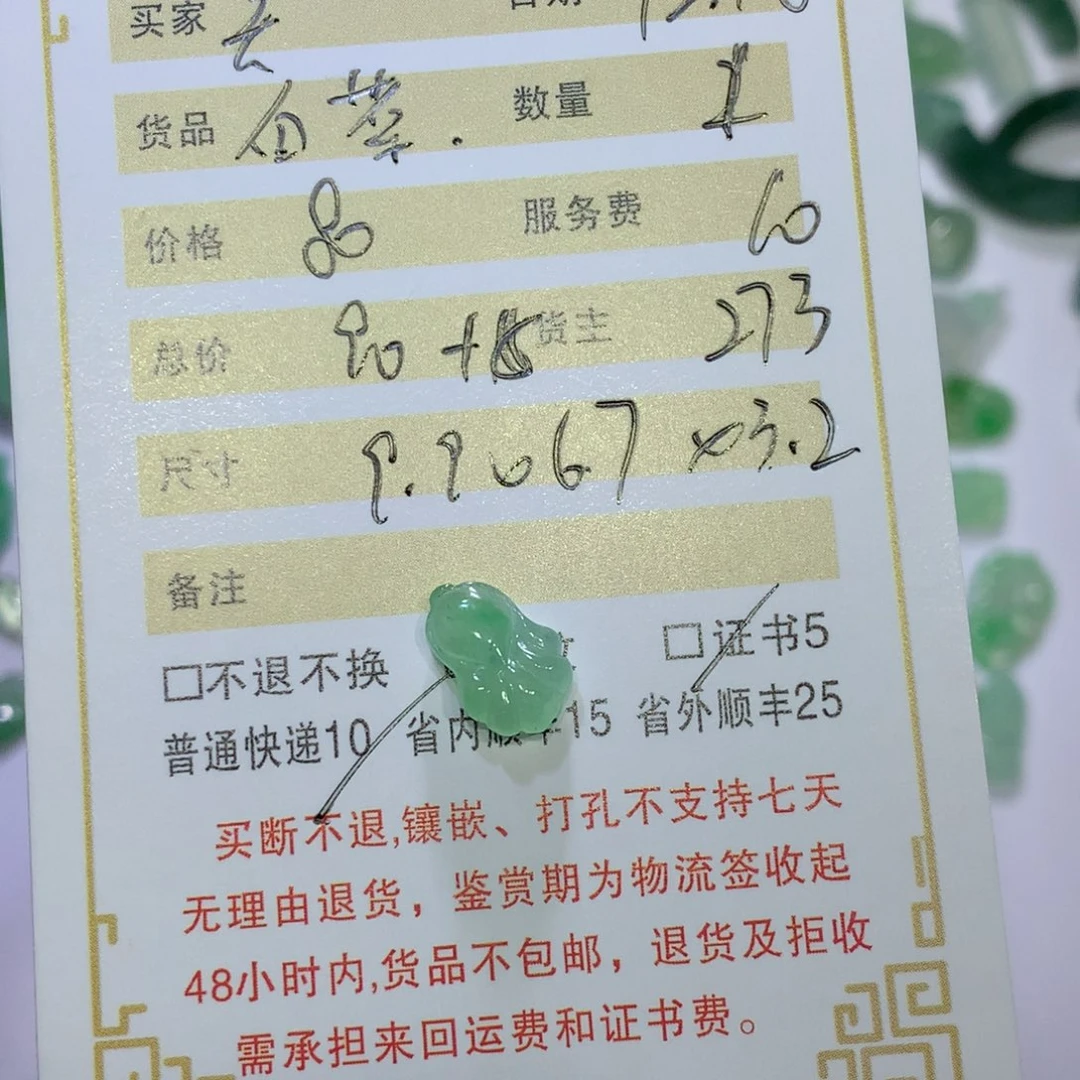 买家 日期
货品 数量 1
价格 80 服务费 10
总价 90 + 15 货主 273
尺寸 9.9 x 6.7 x 3.2
备注
□不退不换 □证书5
普通快递10 省内顺丰15 省外顺丰25
买断不退,镶嵌、打孔不支持七天
无理由退货，鉴赏期为物流签收起
48小时内,货品不包邮，退货及拒收
需承担来回运费和证书费。